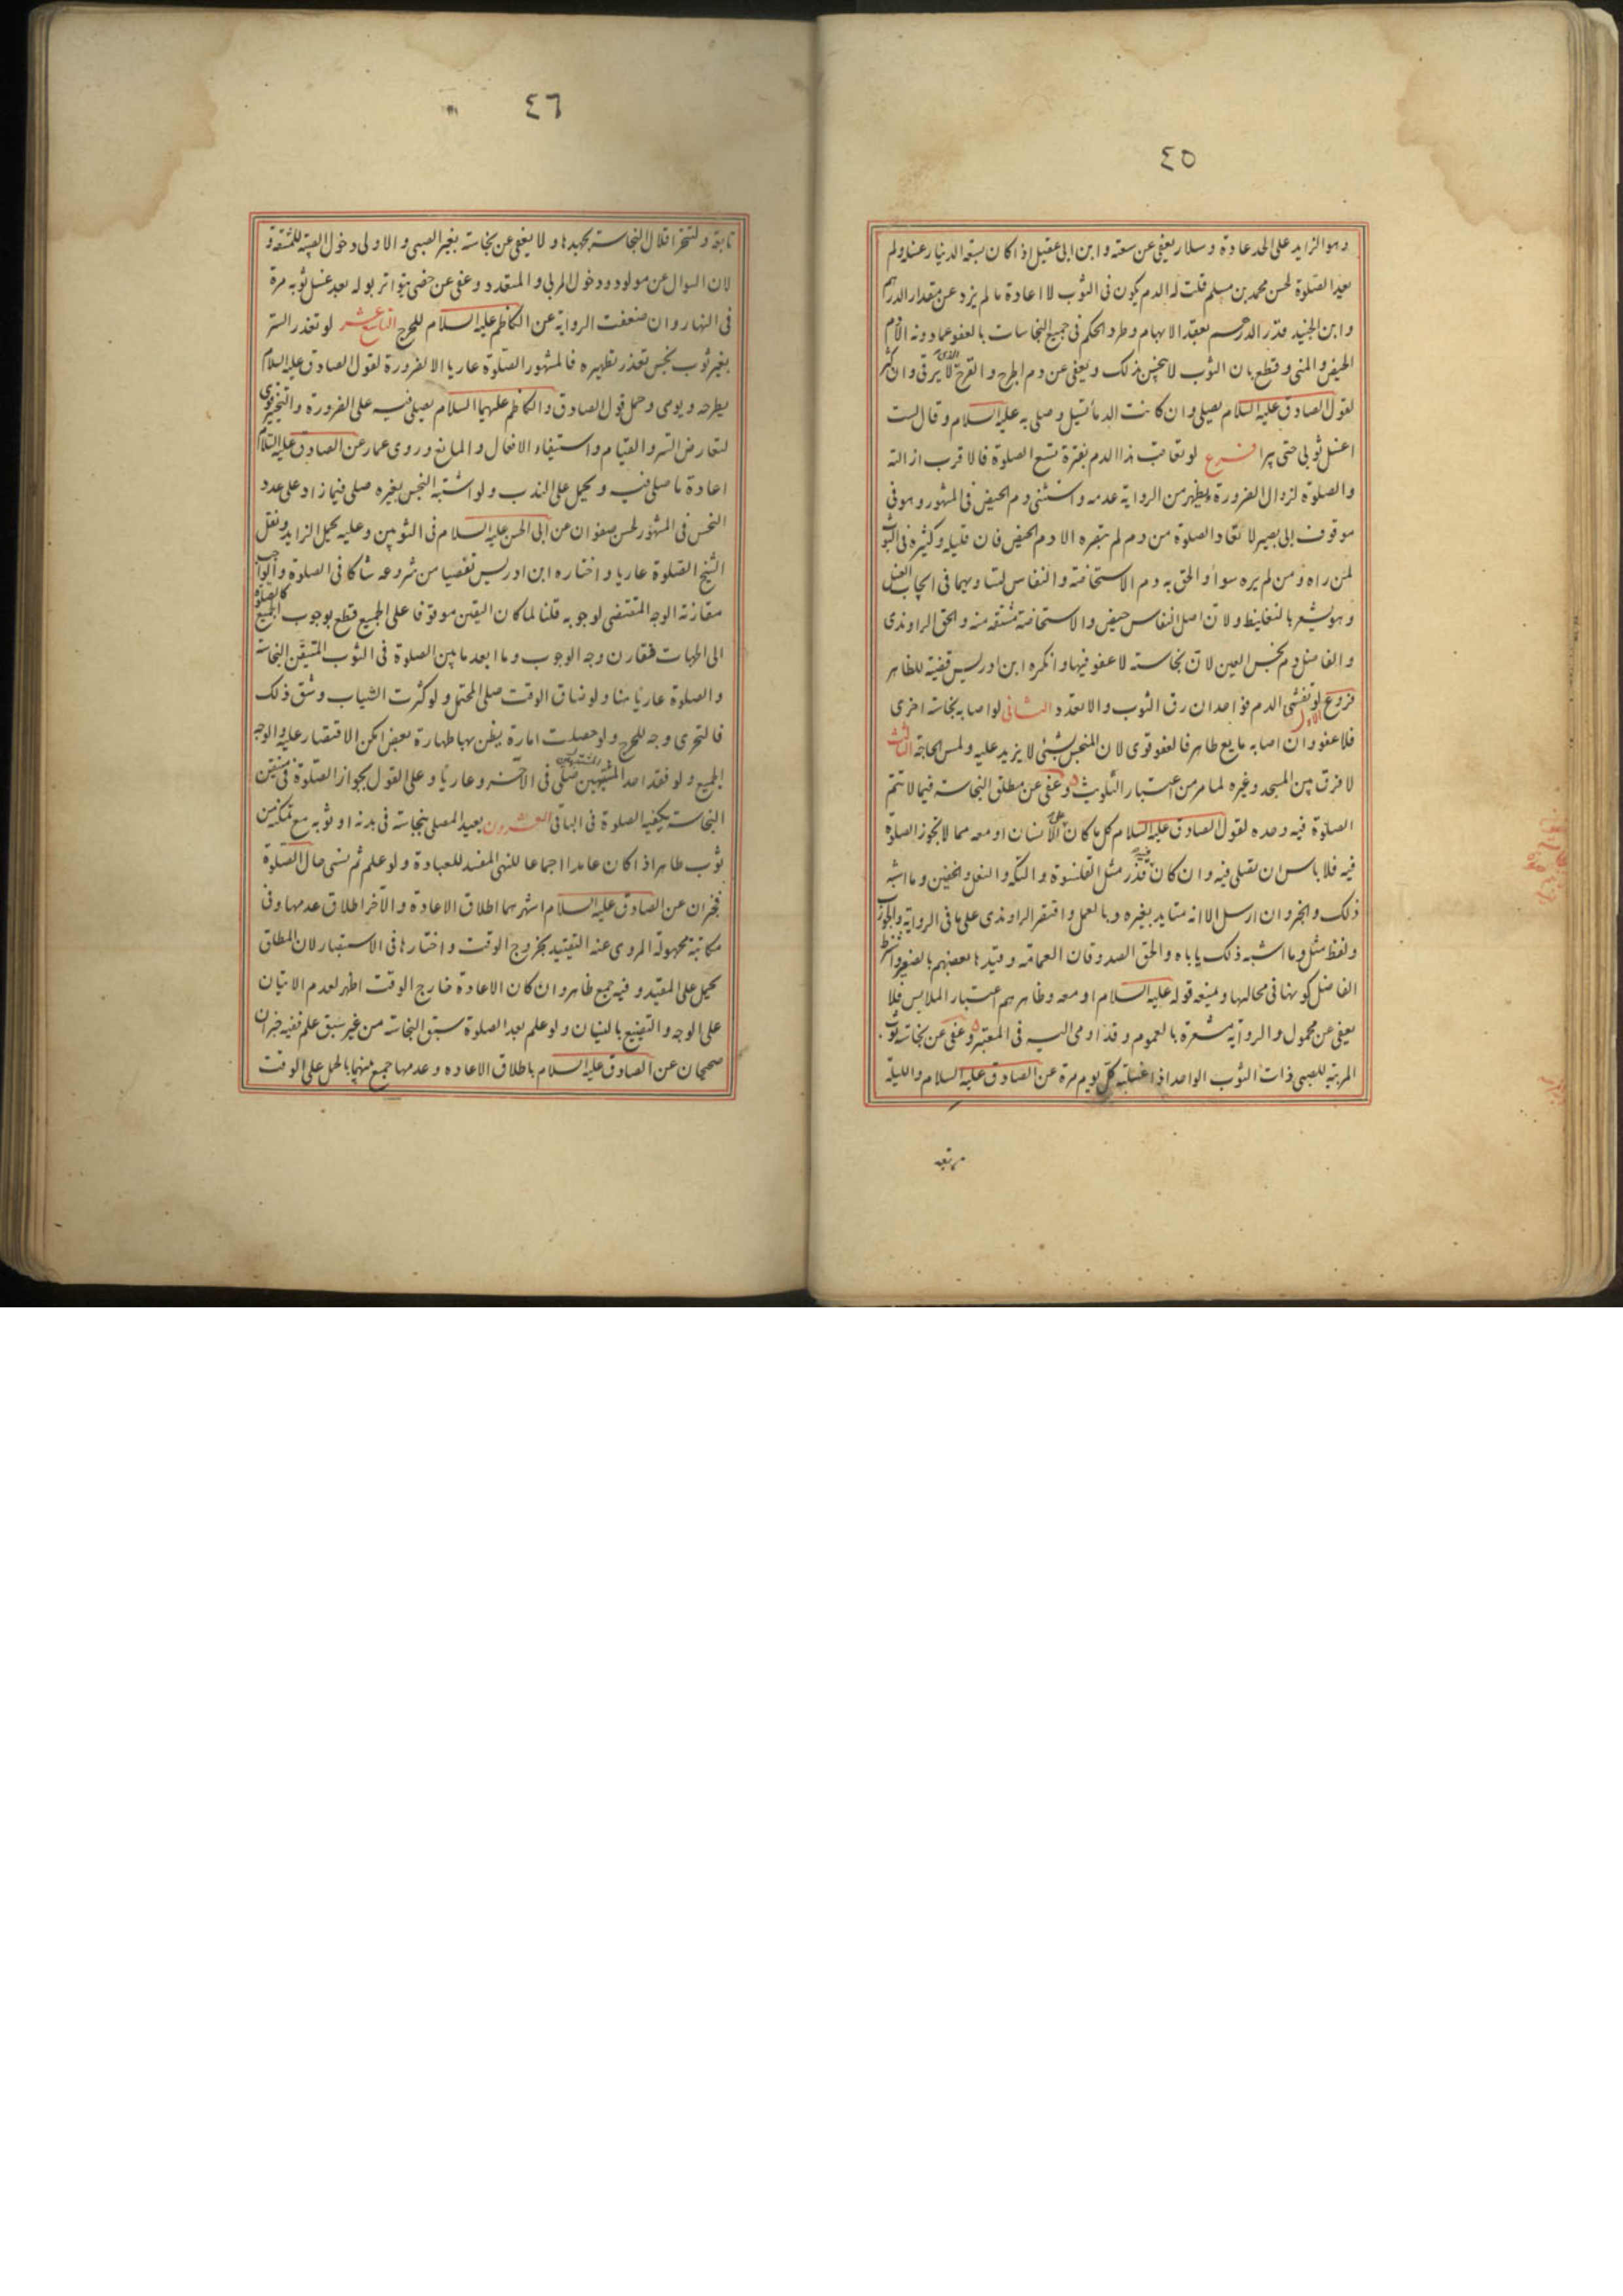 ٤٥
وهو الزايد على الحد عادة وسلار يعفى عن سعته وابن ابى عقيل اذا كان بسعة الدينار غسله ولم
يعد الصلوة لحسن محمد بن مسلم قلت له الدم يكون فى الثوب لا اعادة ما لم يزد عن مقدار الدرهم
وابن الجنيد قدر الدرهم بعقد الابهام وطرد الحكم فى جميع النجاسات بالعفو عما دونه الا دم
الحيض والمنى وقطع بان الثوب لا ينجس بذلك ويعفى عن دم الجرح والقرح الذى لا يرقى وان كثر
لقول الصادق عليه السلام يصلى وان كانت الدماء تسيل وصلى به عليه السلام وقال لست
اغسل ثوبى حتى يبرا فرع لو تعاقب هذا الدم بفترة تسع الصلوة فالاقرب ازالته
والصلوة لزوال الضرورة ويظهر من الرواية عدمه واستثنى دم الحيض فى المشهور وهو فى
موقوف ابى بصير لا تعاد الصلوة من دم لم تبصره الا دم الحيض فان قليله وكثيره فى الثوب
لمن راه ومن لم يره سواء والحق به دم الاستحاضة والنفاس لتساويهما فى ايجاب الغسل
وهو يشعر بالتغليظ ولان اصل النفاس حيض والاستحاضة مشتقه منه والحق الراوندى
والفاضل دم نجس العين لان نجاسته لا عفو فيها وانكره ابن ادريس قضية للظاهر
فروع الاول لو تفشى الدم فواحد ان رق الثوب والا تعدد الثانى لو اصابه نجاسة اخرى
فلا عفو وان اصابه مايع طاهر فالعفو قوى لان المنجس بشئ لا يزيد عليه ولمس الحاجة الثالث
لا فرق بين المسجد وغيره لما مر من اعتبار التلويث وعفى عن مطلق النجاسة فيما لا تتم
الصلوة فيه وحده لقول الصادق عليه السلام كل ما كان على الانسان او معه مما لا تجوز الصلوة
فيه فلا باس ان تصلى فيه وان كان فيه قذر مثل القلنسوة والتكة والنعل والخفين وما اشبه
ذلك والخبر وان ارسل الا انه متايد بغيره وبالعمل واقتصر الراوندى على ما فى الرواية والجورب
ولفظ مثل وما اشبه ذلك ياباه والحق الصدوقان العمامة وقيدها بعضهم بالصغر واشترط
الفاضل كونها فى محالها ويمنعه قوله عليه السلام او معه وظاهرهم اعتبار الملابس فلا
يعفى عن محمول والرواية مشعرة بالعموم وقد اومى اليه فى المعتبر وعفى عن نجاسة ثوب
المربية للصبى ذات الثوب الواحد اذا غسلته كل يوم مرة عن الصادق عليه السلام والليلة
تابعة
٤٦
تابعة ولتتحر اقلال النجاسة بجهدها ولا يعفى عن نجاسته بغير الصبى والاولى دخول الصبية للمشقة و
لان السوال عن مولود ودخول المربى والمتعدد وعفى عن خصى يتواتر بوله بعد غسل ثوبه مرة
فى النهار وان ضعفت الرواية عن الكاظم عليه السلام للحرج التاسع عشر لو تعذر الستر
بغير ثوب نجس تعذر تطهيره فالمشهور الصلوة عاريا الا لضرورة لقول الصادق عليه السلام
يطرحه ويومى وحمل قول الصادق والكاظم عليهما السلام يصلى فيه على الضرورة والتخيير قوى
لتعارض الستر والقيام واستيفاء الافعال والمانع وروى عمار عن الصادق عليه السلام
اعادة ما صلى فيه ويحمل على الندب ولو اشتبه النجس بغيره صلى فيما زاد على عدد
النجس فى المشهور لحسن صفوان عن ابى الحسن عليه السلام فى الثوبين وعليه يحمل الزايد ونقل
الشيخ الصلوة عاريا واختاره ابن ادريس تفصيا من شروعه شاكا فى الصلوة والواجب
مقارنة الوجه المقتضى لوجوبه قلنا لما كان اليقين موقوفا على الجميع قطع بوجوب الجميع كالصلوة
الى الجهات فقارن وجه الوجوب وما ابعد ما بين الصلوة فى الثوب المتيقن النجاسة
والصلوة عاريا هنا ولو ضاق الوقت صلى المحتمل ولو كثرت الثياب وشق ذلك
فالتحرى وجه للحرج ولو حصلت امارة يظن بها طهارة بعض امكن الاقتصار عليه والوجه
الجميع ولو فقد احد المشتبهين صلى فى الاخر وعاريا وعلى القول بجواز الصلوة فى متيقن
النجاسة يكفيه الصلوة فى الباقى العشرون يعيد المصلى بنجاسة فى بدنه او ثوبه مع تمكنه من
ثوب طاهر اذا كان عامدا اجماعا للنهى المفسد للعبادة ولو علم ثم نسى حال الصلوة
فخبران عن الصادق عليه السلام اشهرهما اطلاق الاعادة والآخر اطلاق عدمها وفى
مكاتبة مجهولة المروى عنه التقييد بخروج الوقت واختارها فى الاستبصار لان المطلق
يحمل على المقيد وفيه جمع ظاهر وان كان الاعادة خارج الوقت اظهر لعدم الاتيان
على الوجه والتضييع بالنسيان ولو علم بعد الصلوة سبق النجاسة من غير سبق علم ففيه خبران
صحيحان عن الصادق عليه السلام باطلاق الاعاده وعدمها جمع بينهما بالحمل على الوقت